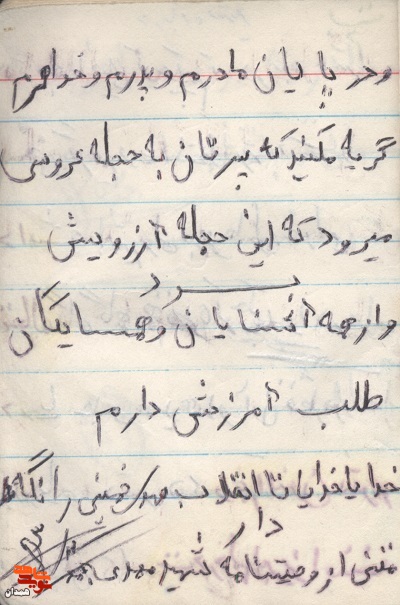 ودر پایان مادرم و پدرم و خواهرم
گریه مکنید که پسرتان به حجله عروسی
میرود که این حجله آرزویش
بود
واز همه آشنایان وهمسایگان
طلب آمرزش دارم
خدایا خدایا تا انقلاب مهدی خمینی را نگاه
دار
متنی از وصیتنامه شهید